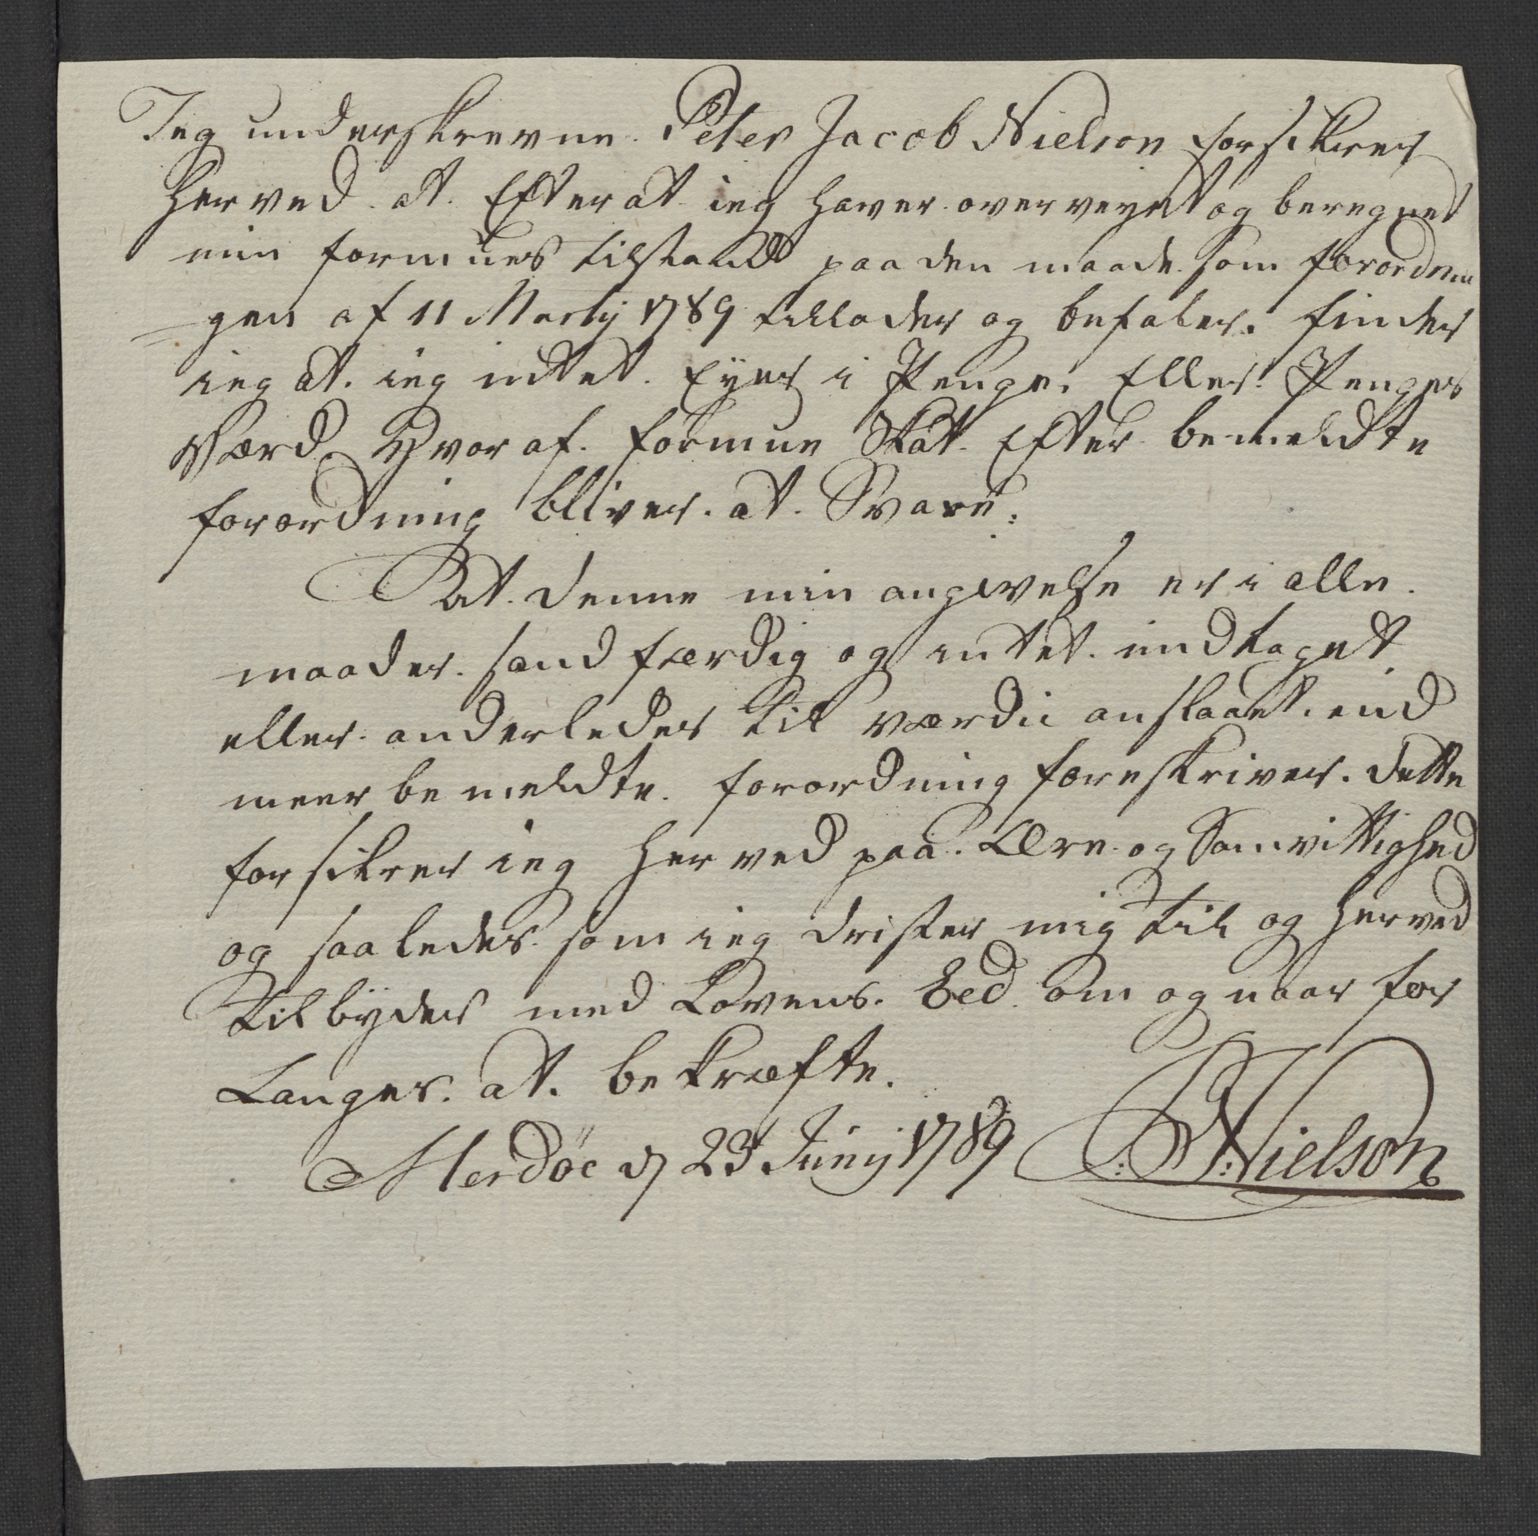 Jeg underskrevne Peter Jacob Nielson forsikrer
herved at Efter at ieg haver overveyet og beregnet
min formues tilstand paa den maade som forordnin
gen af 11 Martij 1789 tillader og befaler. finder
ieg at ieg intet Eyer i Penge. Eller Penges
Værd Hvor af formue Skat Efter bemeldte
forordning bliver at Svare.
At denne min angivelse er i alle
maader sandfærdig og intet indtaget
eller anderledes til værdie anslaaet end
meer bemeldte forordning foreskriver. dette
forsikrer ieg herved paa Ære og Samvittighed
og saaledes som ieg drister mig til og herved
tilbyder med Lovens Eed om og naar for
Langes at bekræfte.
Merdöe d 23 Junij 1789 P: J: Nielson